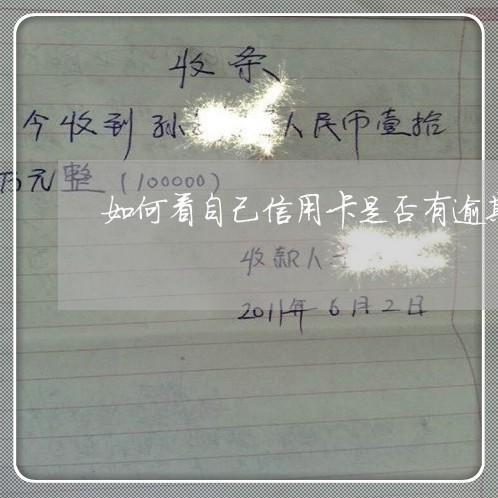 收条
今收到孙 人民币壹拾
万元整(100000)
如何看自己信用卡是否有逾期
收款人
2011年6月2日